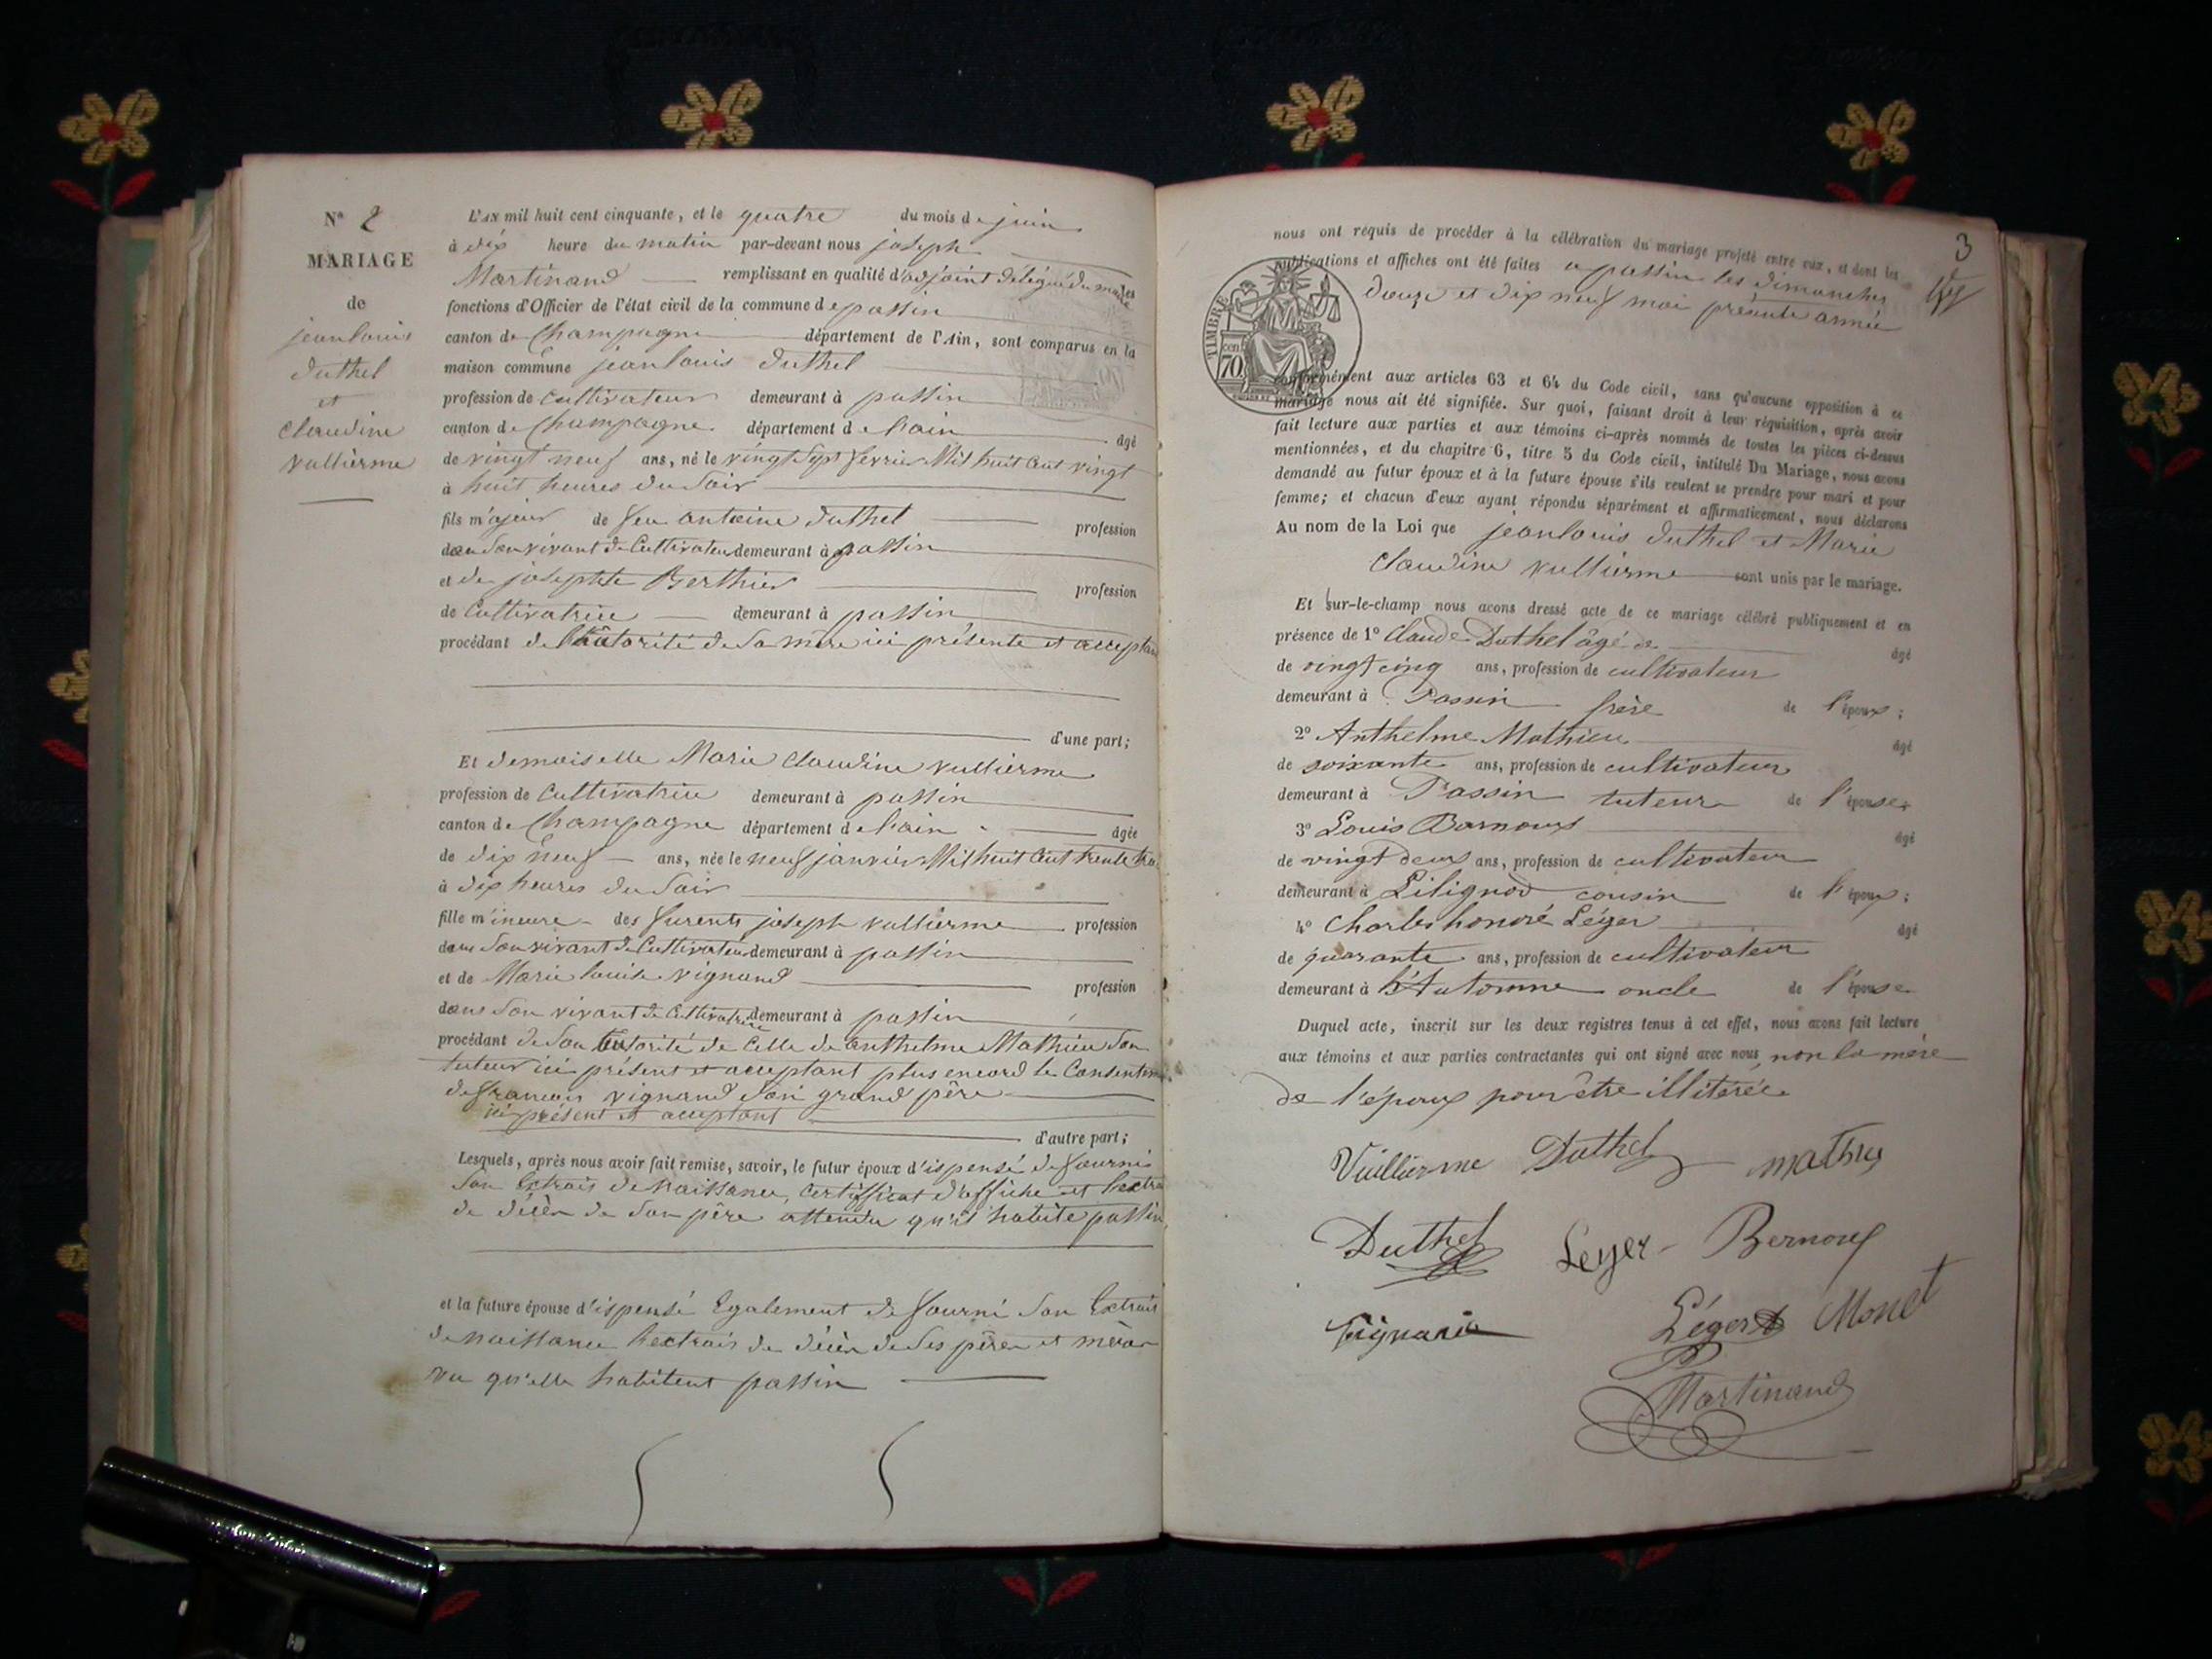 N° 2
MARIAGE
de
jean louis
duthel
et
claudine
vullierme
L'AN mil huit cent cinquante, et le quatre du mois de juin
à dix heure du matin par-devant nous joseph
Martinand remplissant en qualité d'adjoint délégué du maire les
fonctions d'Officier de l'état civil de la commune de passin
canton de Champagne département de l'Ain, sont comparus en la
maison commune jean louis duthel
profession de cultivateur demeurant à passin
canton de Champagne département de l'ain âgé
de vingt neuf ans, né le vingt sept fevrier Mil huit cent vingt
à huit heures du Soir
fils majeur de feu antoine duthel profession
dans Son vivant de Cultivateur demeurant à passin
et de josephte Berthier profession
de Cultivatrice demeurant à passin
procédant de l'autorité de Sa mère ici présente et acceptant
d'une part;
Et demoiselle Marie Claudine vullierme
profession de Cultivatrice demeurant à passin
canton de Champagne département de l'ain âgée
de dix neuf ans, née le neuf janvier Mil huit cent trente
à dix heures du Soir
fille mineure des furents joseph vullierme profession
dans Son vivant de Cultivateur demeurant à passin
et de Marie louise vignand profession
dans Son vivant de Cultivatrice demeurant à passin
procédant de Son autorité de Celle de anthelme Mathieu Son
tuteur ici présent et acceptant plus encord le Consentem
de francois vignand Son grand père
ici présent et acceptant
d'autre part;
Lesquels, après nous avoir fait remise, savoir, le futur époux d'ispensé de fournir
Son Extrait de Naissance, Certifficat d'affiche et l'extrai
de décèr de Son père attendu qu'il habite passin
et la future épouse d'ispensé Egalement de fourni Son Extrait
de Naissance l'extrais de décèr de Ses père et mère
vu qu'elle habitent passin
3
nous ont requis de procéder à la célébration du mariage projeté entre eux, et dont les
publications et affiches ont été faites a passin les dimanches
douze et dix neuf mai présente année
TIMBRE
70
cen
conformément aux articles 63 et 64 du Code civil, sans qu'aucune opposition à ce
mariage nous ait été signifiée. Sur quoi, faisant droit à leur réquisition, après avoir
fait lecture aux parties et aux témoins ci-après nommés de toutes les pièces ci-dessus
mentionnées, et du chapitre 6, titre 5 du Code civil, intitulé Du Mariage, nous avons
demandé au futur époux et à la future épouse s'ils veulent se prendre pour mari et pour
femme; et chacun d'eux ayant répondu séparément et affirmativement, nous déclarons
Au nom de la Loi que jean louis duthel et Marie
Claudine vullierme sont unis par le mariage.
Et sur-le-champ nous avons dressé acte de ce mariage célébré publiquement et en
présence de 1° Claude Duthel âgé de âgé
de vingt cinq ans, profession de cultivateur
demeurant à Passin frère de l'époux;
2° Anthelme Mathieu âgé
de soixante ans, profession de cultivateur
demeurant à Passin tuteur de l'épouse
3° Louis Barnoux âgé
de vingt deux ans, profession de cultivateur
demeurant à Lilignod cousin de l'époux;
4° Charles honoré Léger âgé
de quarante ans, profession de cultivateur
demeurant à oncle de l'épouse
Duquel acte, inscrit sur les deux registres tenus à cet effet, nous avons fait lecture
aux témoins et aux parties contractantes qui ont signé avec nous, non la mère
de l'époux pour être illitérée
Vullierme Duthel mathieu
Duthel Leger Bernoux
Vignand Léger Monet
Martinand